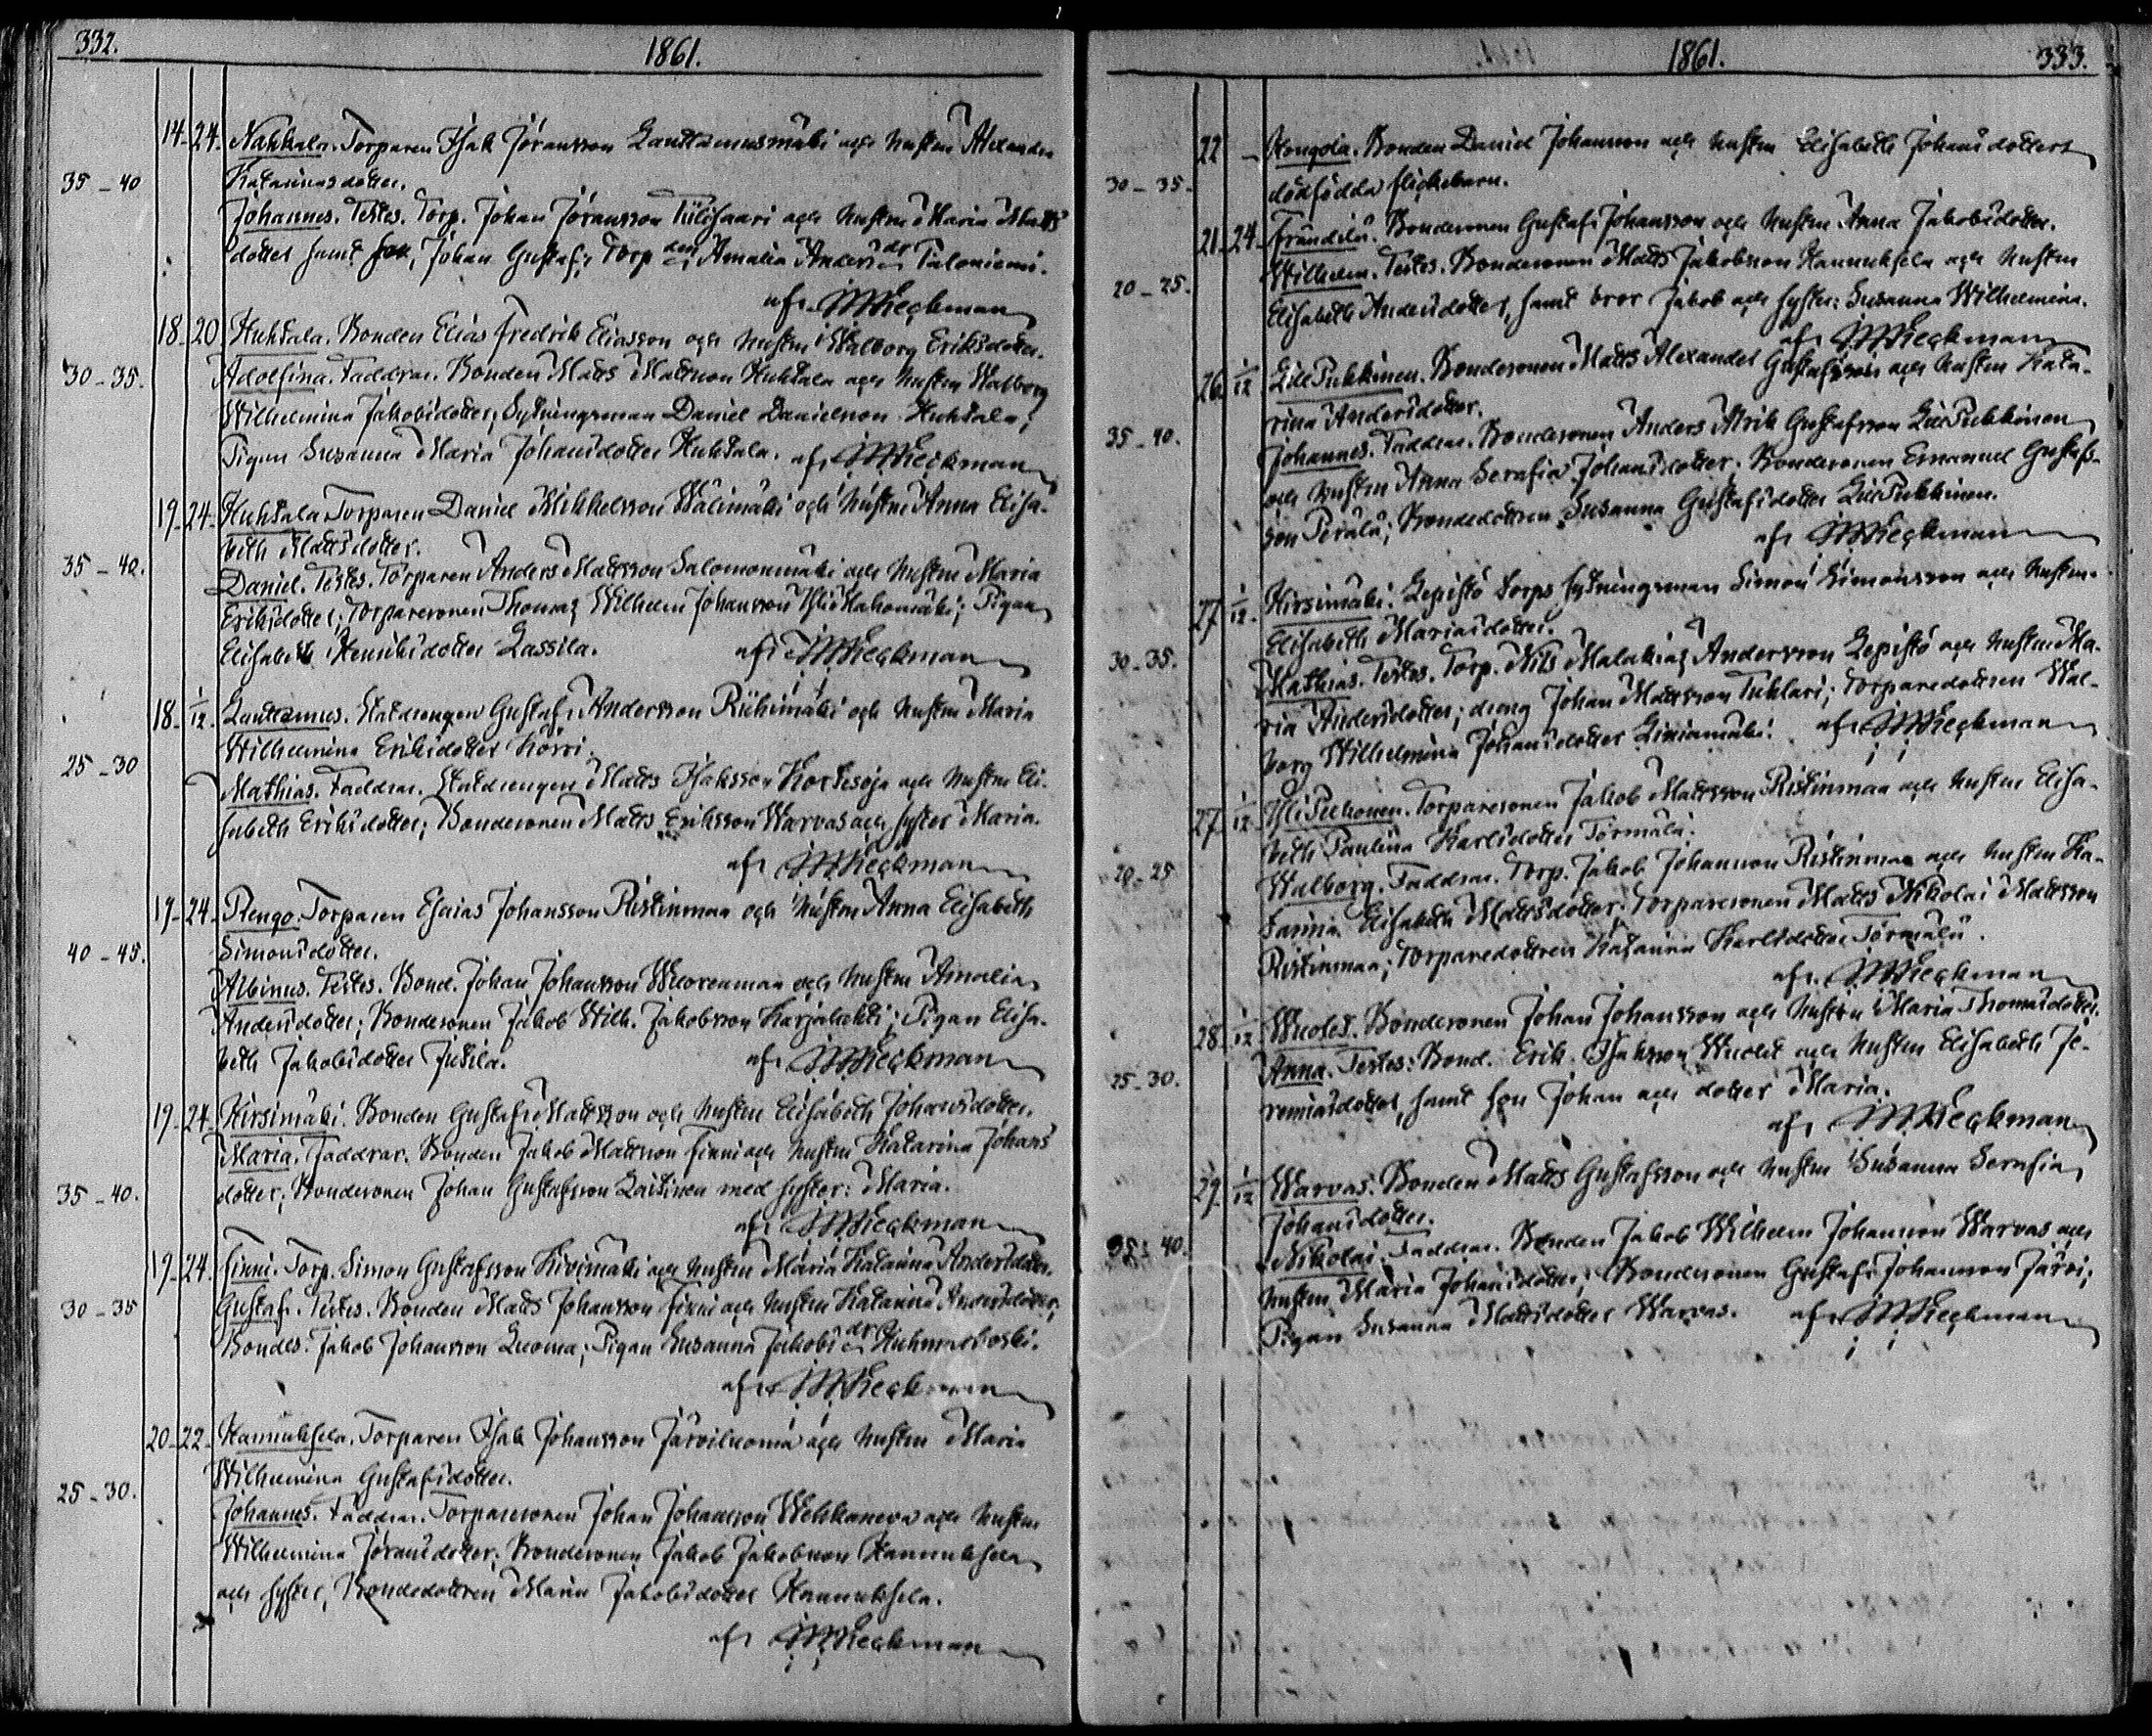 332.
1861.
14. 24. Nahkala. Torparen Isak Jöransson Lanttamusmäki och hustru Alexandra
35 - 40 Katarinasdotter.
Johannes. Testes. Torp. Johan Jöransson Tiilisaari och hustru Maria Matts
dotter samt son, Johan Gustaf; Torp. Amalia Anders dr Taloniemi.
af J M Heckman
18. 20 Huhtala. Bonden Elias Fredrik Eliasson och hustru Walborg Eriksdotter.
30 - 35. Adolfina. Faddrar. Bonden Matts Mattsson Huhtala och hustru Walborg
Wilhelmina Jakobsdotter; Sytningsman Daniel Danielsson Huhtala;
Pigan Susanna Maria Johansdotter Huhtala. af J M Heckman
19. 24. Huhtala Torparen Daniel Mikkelsson Wälimäki och hustru Anna Elisa-
beth Mattsdotter.
35 - 40. Daniel. Testes. Torparen Anders Mattsson Salomonmäki och hustru Maria
Eriksdotter; Torparesonen Thomas Wilhelm Johansson Pigan
Elisabeth Henriksdotter Lassila. af J M Heckman
18. 1/12. Lanttamus. Statdrengen Gustaf Andersson Riihimäki och hustru Maria
Wilhelmina Eriksdotter Körri.
25 - 30 Mathias. Faddrar. Statdrengen Matts Isaksson Kortesoja och hustru Eli-
sabeth Eriksdotter; Bondesonen Matts Eriksson Warvas och syster Maria.
af J M Heckman
19. 24. Rengo. Torparen Esaias Johansson Ristinmaa och hustru Anna Elisabeth
40 - 45. Simonsdotter.
Albinus. Testes. Bond. Johan Johansson Wuorenmaa och hustru Amalia
Andersdotter; Bondesonen Jakob Wilh. Jakobsson Karjalahti; Pigan Elisa-
beth Jakobsdotter Jutila. af J M Heckman
19. 24. Hirsimäki. Bonden Gustaf Mattsson och hustru Elisabeth Johansdotter.
Maria. Faddrar. Bonden Jakob Mattsson Finni och hustru Katarina Johans
35 - 40. dotter; Bondesonen Johan Gustafsson Laitinen med syster: Maria.
af J M Heckman
19. 24. Finni. Torp. Simon Gustafsson Kivimäki och hustru Maria Katarina Andersdotter.
30 - 35 Gustaf. Testes. Bonden Matts Johansson Finni och hustru Katarina Andersdotter;
Bondes. Jakob Johansson Luoma; Pigan Susanna Jakobs dr
af J M Heckman
20. 22. Hannuksela. Torparen Isak Johansson Järviluoma och hustru Maria
Wilhelmina Gustafsdotter.
25 - 30. Johannes. Faddrar. Torparesonen Johan Johansson Wehkaneva och hustru
Wilhelmina Jöransdotter; Bondesonen Jakob Jakobsson Hannuksela
och syster, Bondedottren Maria Jakobsdotter Hannuksela.
af J M Heckman
1861.
333.
22 - Kongola. Bonden Daniel Johansson och hustru Elisabeth Johansdotters
30 - 35. dödfödda flickebarn.
21. 24. Frändilä. Bondesonen Gustaf Johansson och hustru Anna Jakobsdotter.
20 - 25. Wilhelm. Testes. Bondesonen Matts Jakobsson Hannuksela och hustru
Elisabeth Andersdotter, samt bror Jakob och syster: Susanna Wilhelmina.
af J M Heckman
26. 1/12 Lill Pukkinen. Bondesonen Matts Alexander Gustafsson och hustru Kata-
rina Andersdotter.
35 - 40. Johannes. Faddrar. Bondesonen Anders Alrik Gustafsson Lill Pukkinen
och hustru Anna Serafia Johansdotter; Bondesonen Emanuel Gustafs-
son Perälä; Bondedottren Susanna Gustafsdotter Lill Pukkinen.
af J M Heckman
27. 1/12. Hirsimäki. Lepistö torps sytningsman Simon Simonsson och hustru
Elisabeth Mariasdotter.
30 - 35. Mathias. Testes. Torp. Nils Malakias Andersson Lepistö och hustru Ma-
ria Andersdotter; dreng Johan Mattsson Tuhlari; Torparedottren Wal-
borg Wilhelmina Johansdotter Liniamäki. af J M Heckman
27. 1/12 Yli Pelkonen. Torparesonen Jakob Mattsson Ristinmaa och hustru Elisa-
beth Paulina Karlsdotter Törmälä.
20 - 25 Walborg. Faddrar. Torp. Jakob Johansson Ristinmaa och hustru Ka-
tarina Elisabeth Mattsdotter; Torparesonen Matts Nikolai Mattsson
Ristinmaa; Torparedottren Katarina Karlsdotter Törmälä.
af J M Heckman
28. 1/12 Wuolet. Bondesonen Johan Johansson och hustru Maria Thomasdotter.
25 - 30. Anna. Testes: Bond. Erik Isaksson Wuolet och hustru Elisabeth Je-
remiasdotter, samt son Johan och dotter Maria.
af J M Heckman
29. 1/12 Warvas. Bonden Matts Gustafsson och hustru Susanna Serafia
Johansdotter.
35 - 40. Nikolai. Faddrar. Bonden Jakob Wilhelm Johansson Warvas och
hustru Maria Johansdotter; Bondesonen Gustaf Johansson Järvi;
Pigan Susanna Mattsdotter Warvas. af J M Heckman